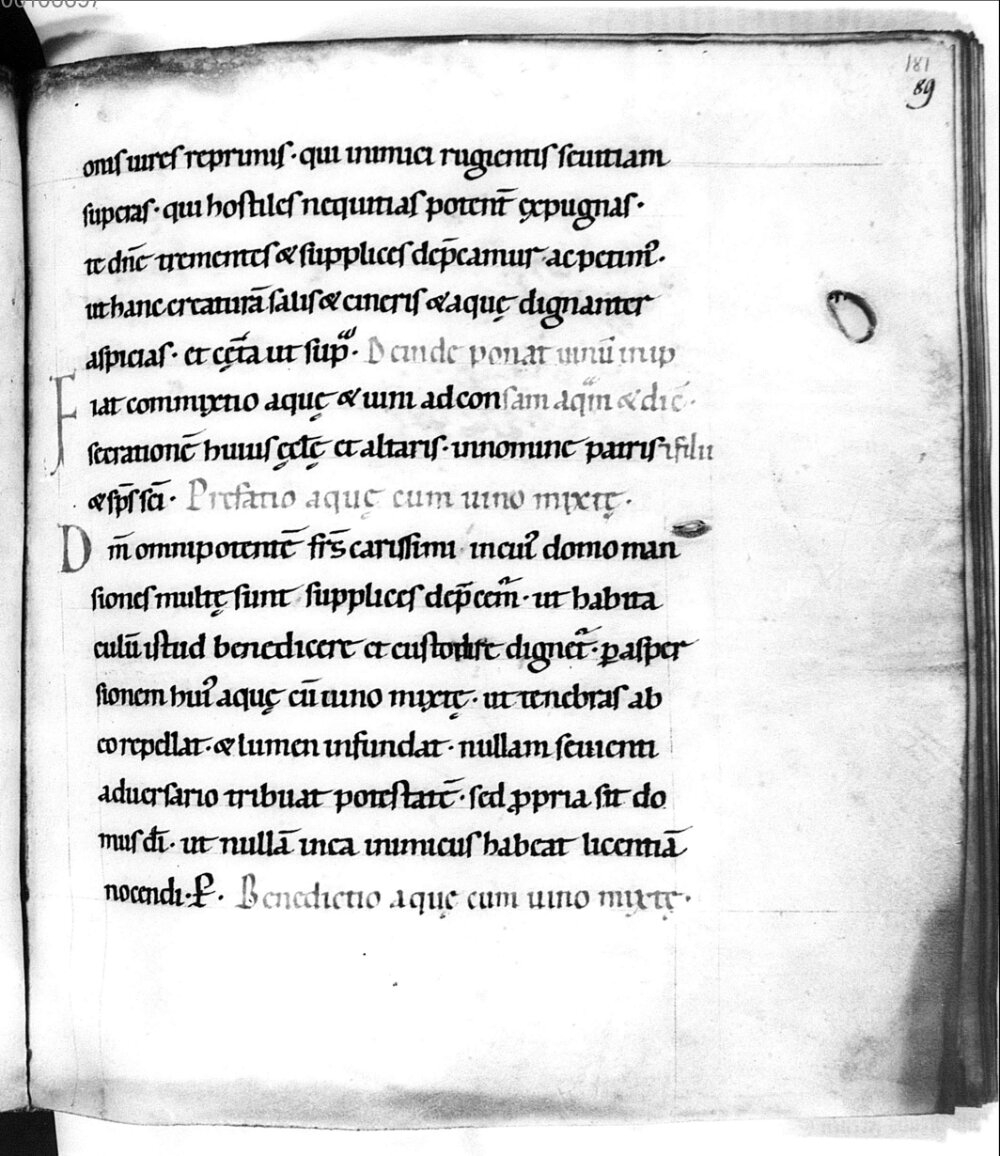 181
89
onis uires reprimis · qui inimici rugientis seuitiam
superas · qui hostiles nequitias potent̄ ęxpugnas ·
te dn̄e trementes & supplices dep̄camur · ac petim᷒ ·
ut hanc creaturā salis & cineris & aquę dignanter
aspicias · et cęt̄a ut sup̄ · Deinde ponat uinū in ip
Fiat commixtio aquę & uini ad consam aquam & dic̄ ·
secrationē huius ęcl̄ę et altaris · in nomine patris ⁊ filii
& sp̄s sc̄i · Prefatio aquę cum uino mixtę ·
Dm̄ omnipotentē fr̄s carissimi · in cui᷒ domo man
siones multę sunt supplices dep̄cem̄ · ut habita
culū istud benedicere et custodire dignet᷑ · ꝑ asper
sionem hui᷒ aquę cū uino mixtę · ut tenebras ab
eo repellat · & lumen infundat · nullam seuienti
aduersario tribuat potestatē · sed ꝓpria sit do
mus dī · ut nullā in ea inimicus habeat licentiā
nocendi · P̱ · Benedictio aquę cum uino mixtę ·